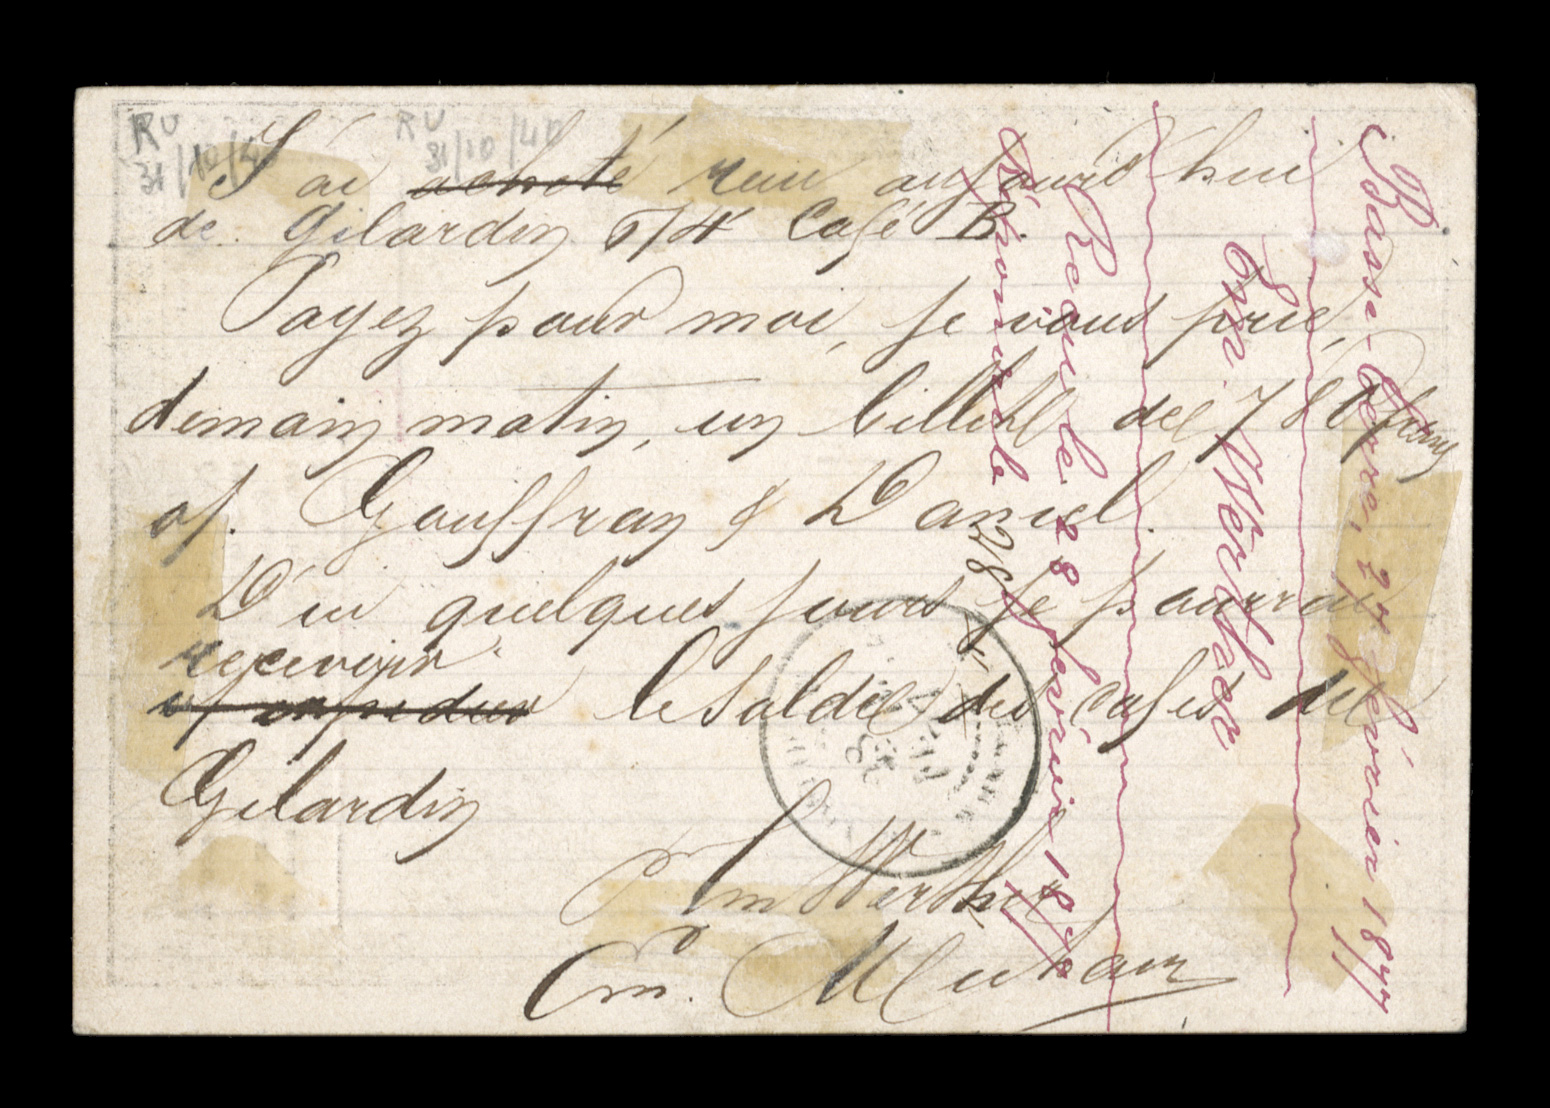 RU
31/10/40
RU
31/10/40
J'ai acheté reçu aujourd'hui
de Gilardin 5/4 Café B.
Payez pour moi, je vous prie,
demain matin, un billet de 780 francs
of. Gouffran & Daniel.
D'ici quelques jours je pourrai
recevoir
le solde des cafés de
Gilardin
Pr Em Werther
Em.
Basse-Terre, 27 février 1877
Em. Werther
Reçue le 28 février 1877
Répondu le 28